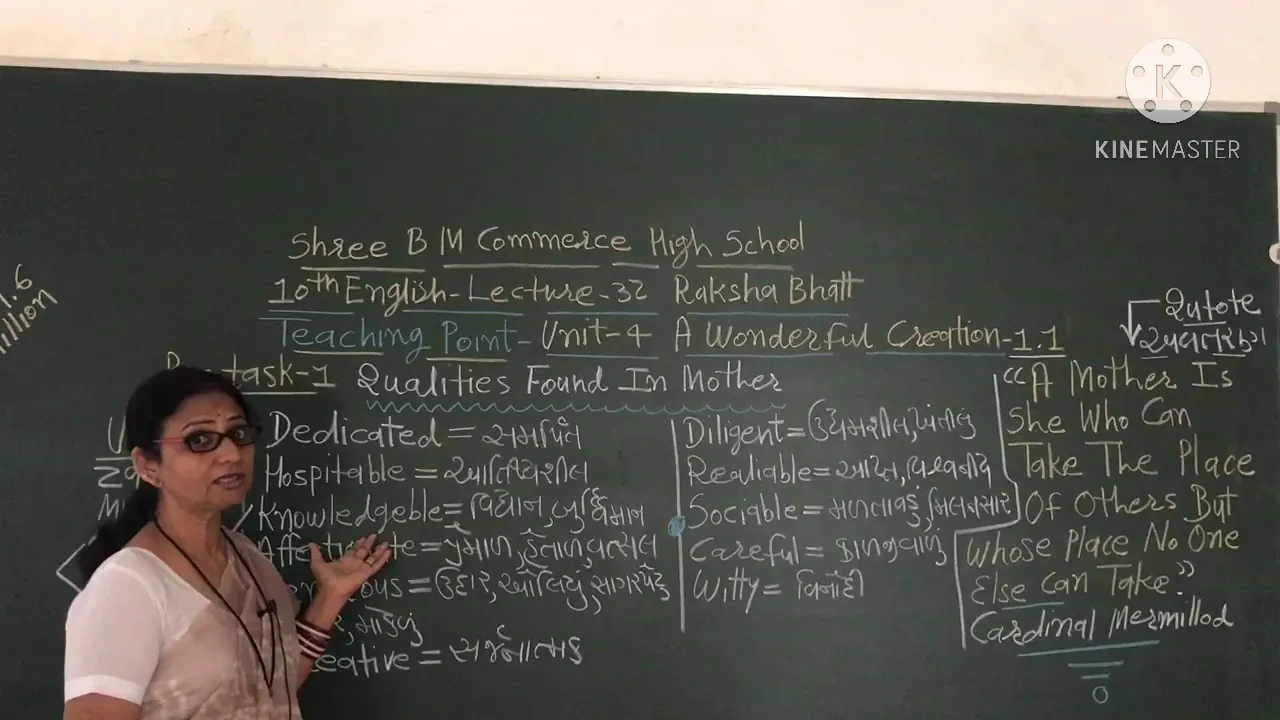 KINEMASTER
Shree B M Commerce High School
10th English-Lecture-32 Raksha Bhatt
Teaching Point- Unit-4 A Wonderful Creation-1.1
task-1 Qualities Found In Mother
Dedicated = સમર્પિત
Hospitable = આતિથ્યશીલ
Knowledgeble = વિદ્વાન, બુદ્ધિમાન
= પ્રેમાળ, હેતાળ, વત્સલ
= ઉદાર, ઓલિયું, સાગરપેટું
eative = સર્જનાત્મક
Diligent = ઉદ્યમશીલ, ખંતીલું
Realiable =
Sociable = મળતાવડું, મિલનસાર
Careful = કાળજીવાળું
Witty = વિનોદી
Qutote
અવતરણ
“A Mother Is
She Who Can
Take The Place
Of Others But
Whose Place No One
Else Can Take”
Cardinal Mermillod
1.6
illion